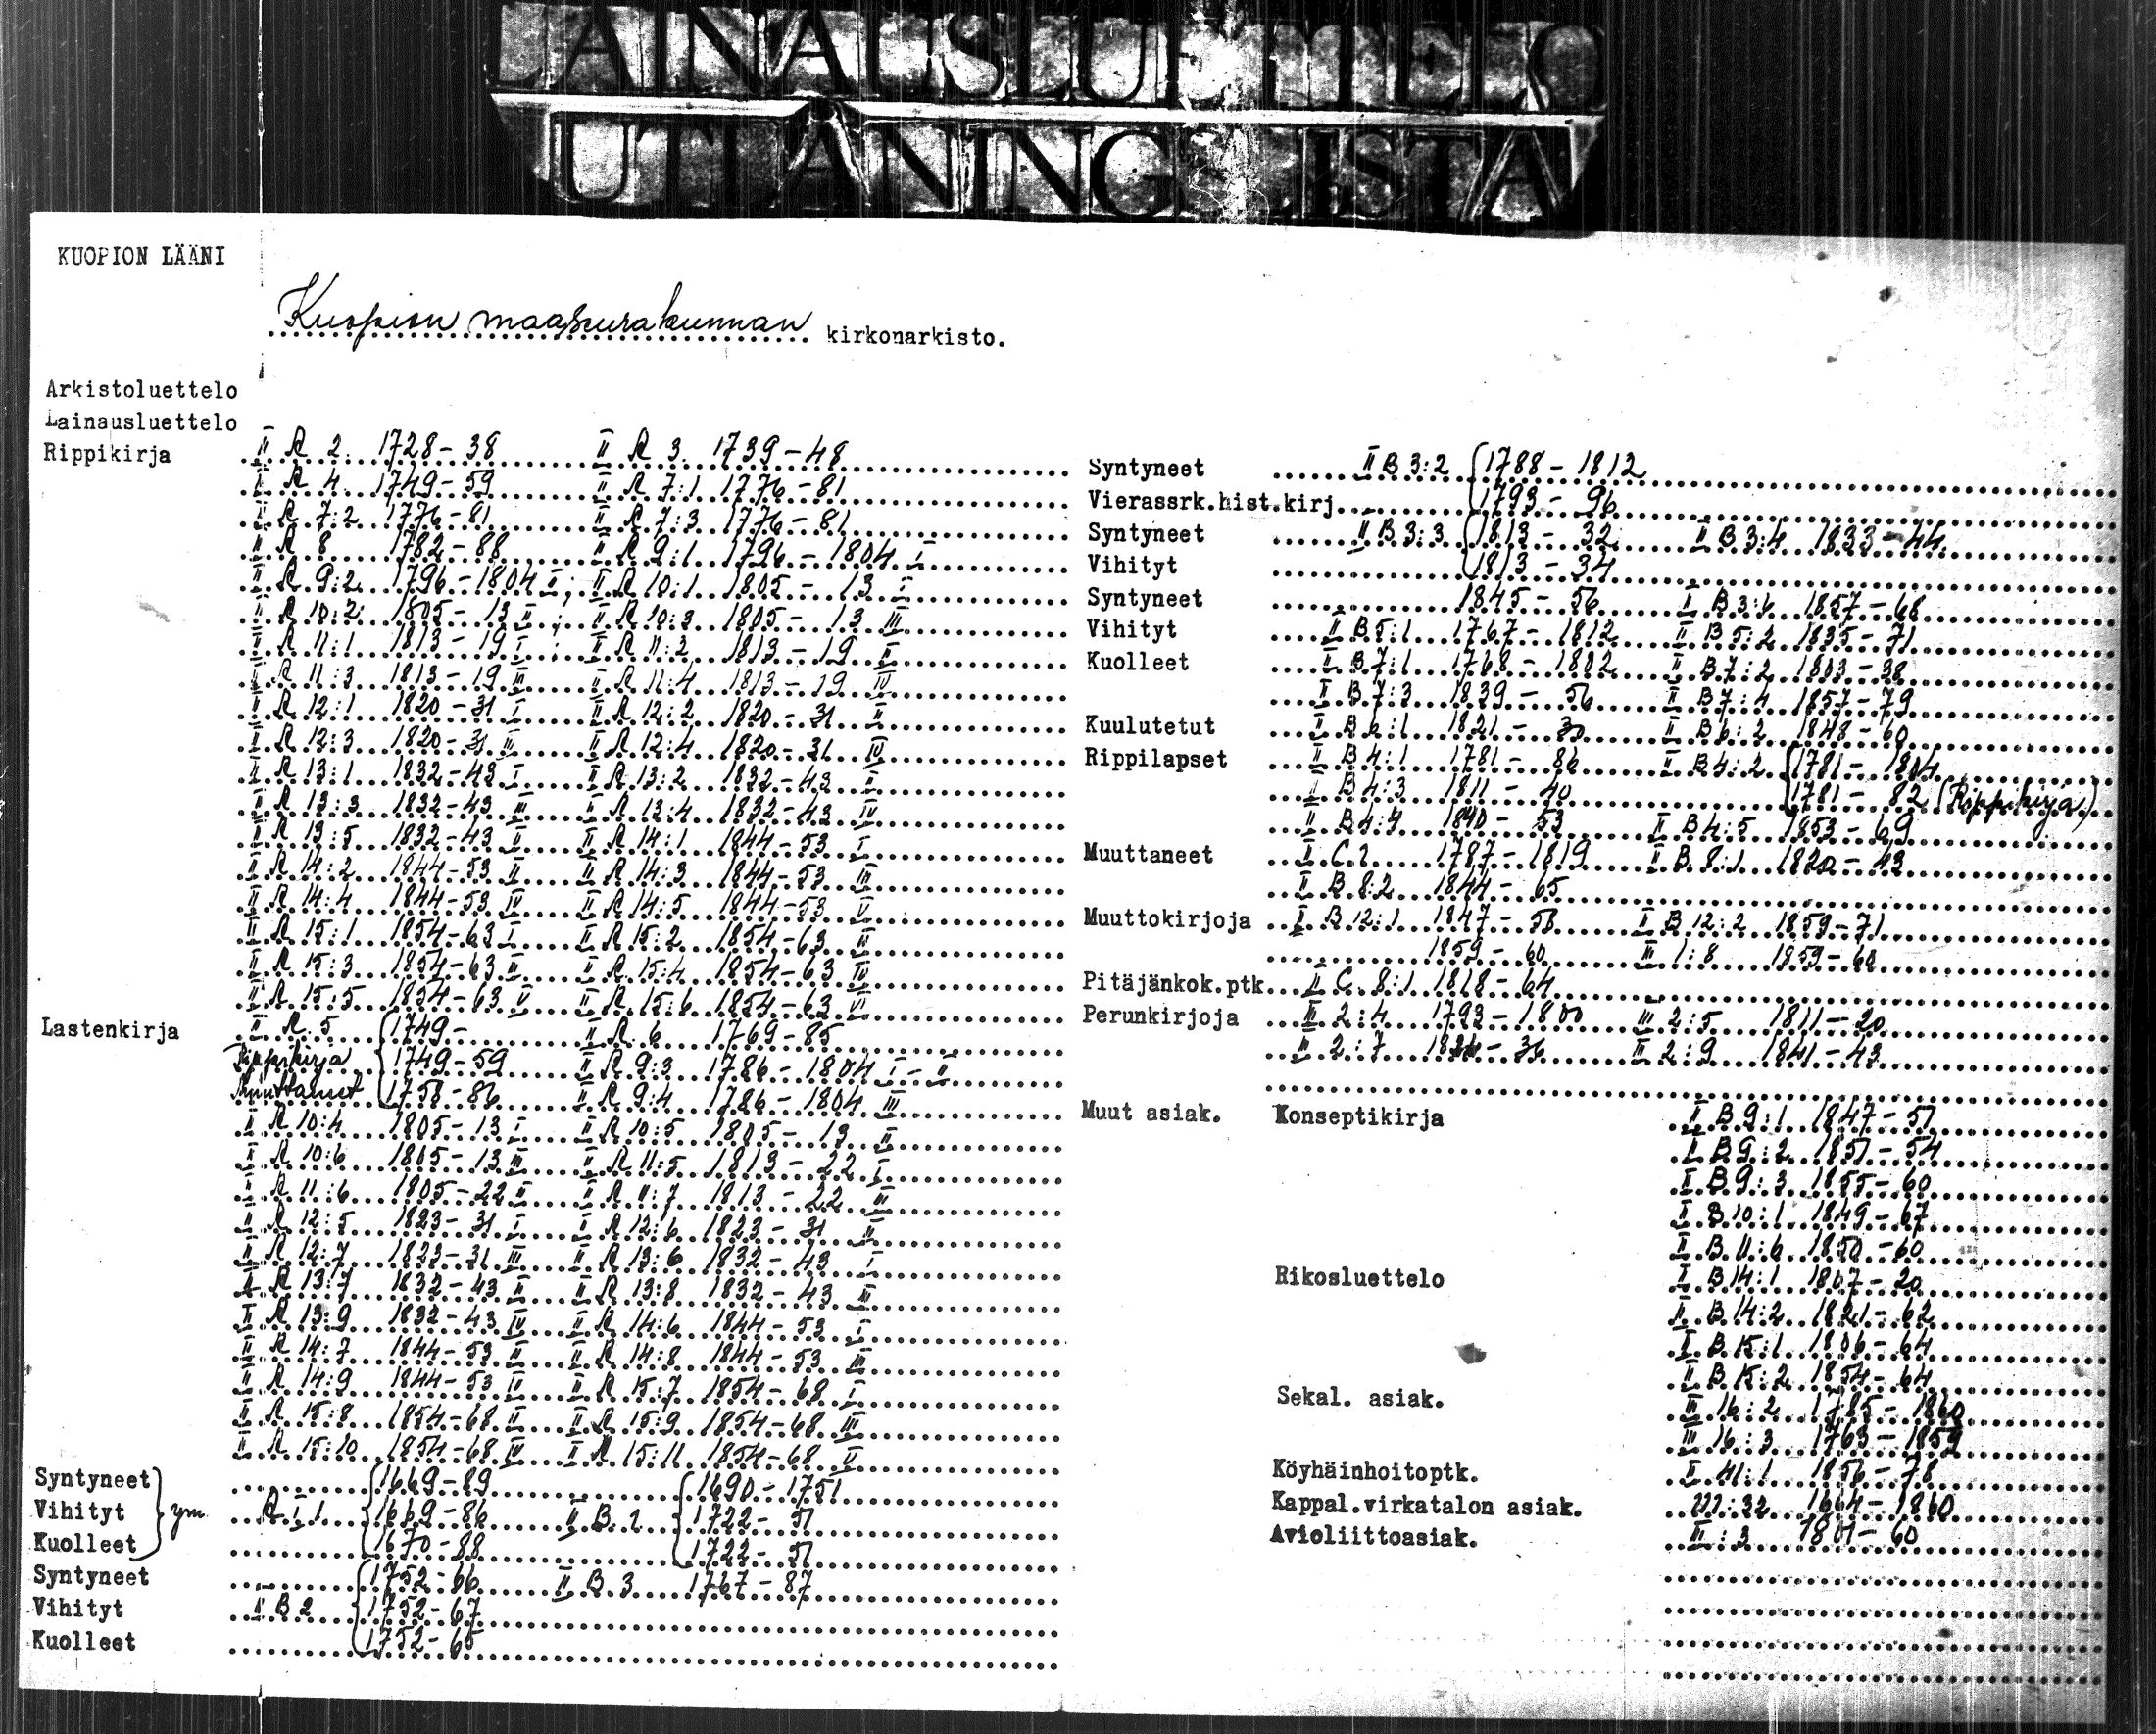 LAINAUSLUETTELO
UTLÅNINGSLISTA
KUOPION LÄÄNI
Kuopion maaseurakunnan kirkonarkisto.
Arkistoluettelo
Lainausluettelo
Rippikirja II A 2 1728-38 II A 3 1739-48
II A 4 1749-59 II A 7:1 1776-81
II A 7:2 1776-81 II A 7:3 1776-81
II A 8 1782-88 II A 9:1 1796-1804 I
II A 9:2 1796-1804 II; II A 10:1 1805-13 I
II A 10:2 1805-13 II; II A 10:3 1805-13 III
II A 11:1 1813-19 I; II A 11:2 1813-19 II
II A 11:3 1813-19 III II A 11:4 1813-19 IV
II A 12:1 1820-31 I II A 12:2 1820-31 II
II A 12:3 1820-31 III II A 12:4 1820-31 IV
II A 13:1 1832-43 I II A 13:2 1832-43 II
II A 13:3 1832-43 III II A 13:4 1832-43 IV
II A 13:5 1832-43 V II A 14:1 1844-53 I
II A 14:2 1844-53 II II A 14:3 1844-53 III
II A 14:4 1844-53 IV II A 14:5 1844-53 V
II A 15:1 1854-63 I II A 15:2 1854-63 II
II A 15:3 1854-63 III II A 15:4 1854-63 IV
II A 15:5 1854-63 V II A 15:6 1854-63 VI
Lastenkirja II A 5 1749- II A 6 1769-85
Rippikirja 1749-59 II A 9:3 1786-1804 I-II
Muuttaneet 1758-86 II A 9:4 1786-1804 III
II A 10:4 1805-13 I II A 10:5 1805-13 II
II A 10:6 1805-13 III II A 11:5 1813-22 I
II A 11:6 1805-22 II II A 11:7 1813-22 III
II A 12:5 1823-31 I II A 12:6 1823-31 II
II A 12:7 1823-31 III II A 13:6 1832-43 I
II A 13:7 1832-43 II II A 13:8 1832-43 III
II A 13:9 1832-43 IV II A 14:6 1844-53 I
II A 14:7 1844-53 II II A 14:8 1844-53 III
II A 14:9 1844-53 IV II A 15:7 1854-68 I
II A 15:8 1854-68 II II A 15:9 1854-68 III
II A 15:10 1854-68 IV II A 15:11 1854-68 V
Syntyneet 1669-89 1690-1751
Vihityt ym. A I 1 1669-86 II B 1 1722-51
Kuolleet 1670-88 1722-51
Syntyneet 1752-66 II B 3 1767-87
Vihityt II B 2 1752-67
Kuolleet 1752-65
Syntyneet II B 3:2 1788-1812
Vierassrk.hist.kirj. 1793-96
Syntyneet II B 3:3 1813-32 II B 3:4 1833-44
Vihityt 1813-34
Syntyneet 1845-56 II B 3:6 1857-68
Vihityt II B 5:1 1767-1812 II B 5:2 1835-71
Kuolleet II B 7:1 1768-1802 II B 7:2 1803-38
II B 7:3 1839-56 II B 7:4 1857-79
Kuulutetut II B 6:1 1821-30 II B 6:2 1848-60
Rippilapset II B 4:1 1781-86 II B 4:2 1781-1804
II B 4:3 1811-40 1781-82 (Rippikirja)
II B 4:4 1840-53 II B 4:5 1853-69
Muuttaneet II C 1 1787-1819 II B 8:1 1820-43
II B 8:2 1844-65
Muuttokirjoja II B 12:1 1847-58 II B 12:2 1859-71
1859-60 III 1:8 1859-60
Pitäjänkok.ptk. II C 8:1 1818-64
Perunkirjoja III 2:4 1793-1800 III 2:5 1811-20
III 2:7 III 2:9 1841-43
Muut asiak. Konseptikirja II B 9:1 1847-51
II B 9:2 1851-54
II B 9:3 1855-60
II B 10:1 1849-67
II B 11:6 1850-60
Rikosluettelo II B 14:1 1807-20
II B 14:2 1821-62
II B 15:1 1806-64
II B 15:2 1854-64
Sekal. asiak. III 16:2 1785-1860
III 16:3 1763-1859
Köyhäinhoitoptk. II 41:1 1856-78
Kappal.virkatalon asiak. III:32 1664-1860
Avioliittoasiak. III:3 1801-60